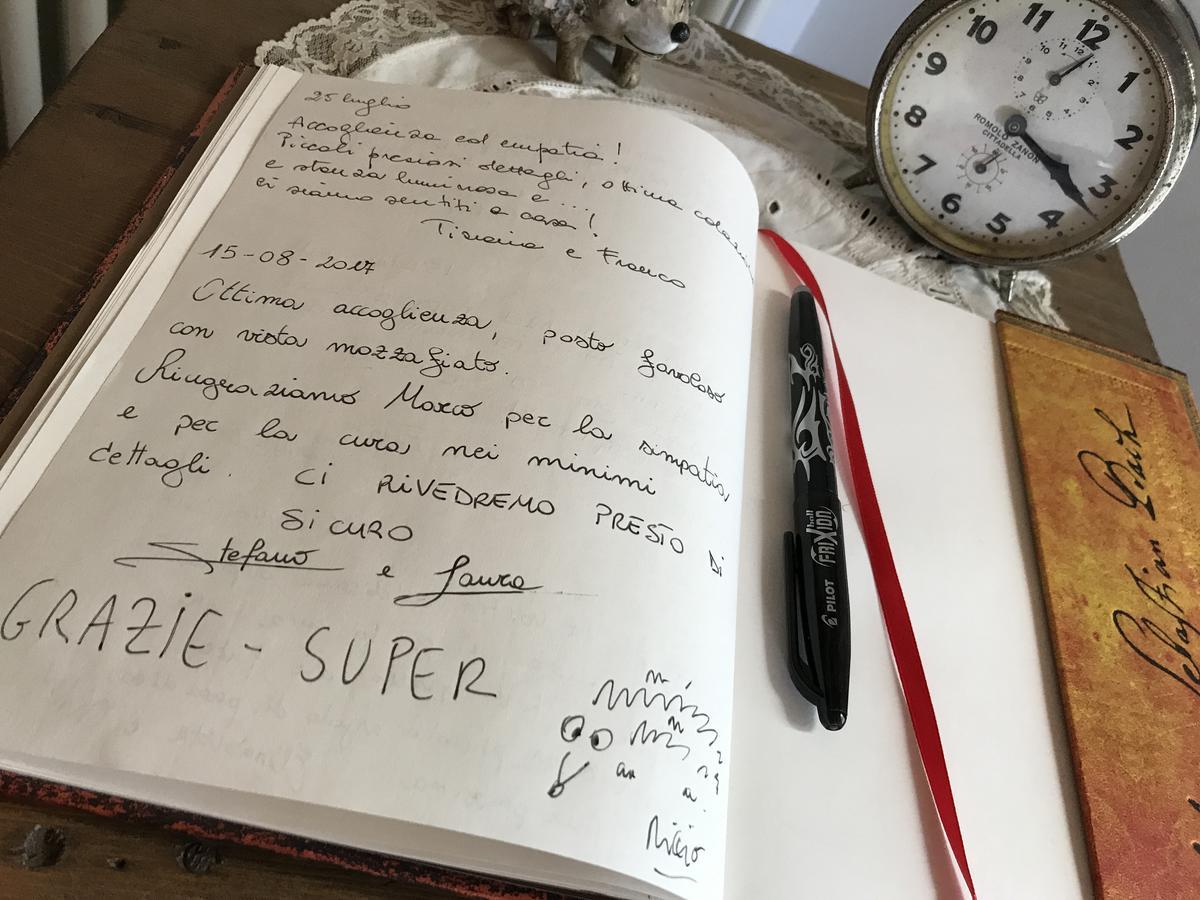 25 luglio
Accoglienza ed empatia!
Piccoli preziosi dettagli, ottima colazione
e stanza luminosa e ...!
ci siamo sentiti a casa!
Tiziana e Franco
15-08-2017
Ottima accoglienza, posto favoloso
con vista mozzafiato.
Ringraziamo Marco per la simpatia,
e per la cura nei minimi
dettagli. Ci RiVEDREMO PRESTO Di
SiCURO
Stefano e Laura
GRAZiE - SUPER
Riccio
12
1
2
3
4
5
6
7
8
9
10
11
ROMOLO ZANON
CITTADELLA
PILOT FRiXION ball
Sebastian Bach